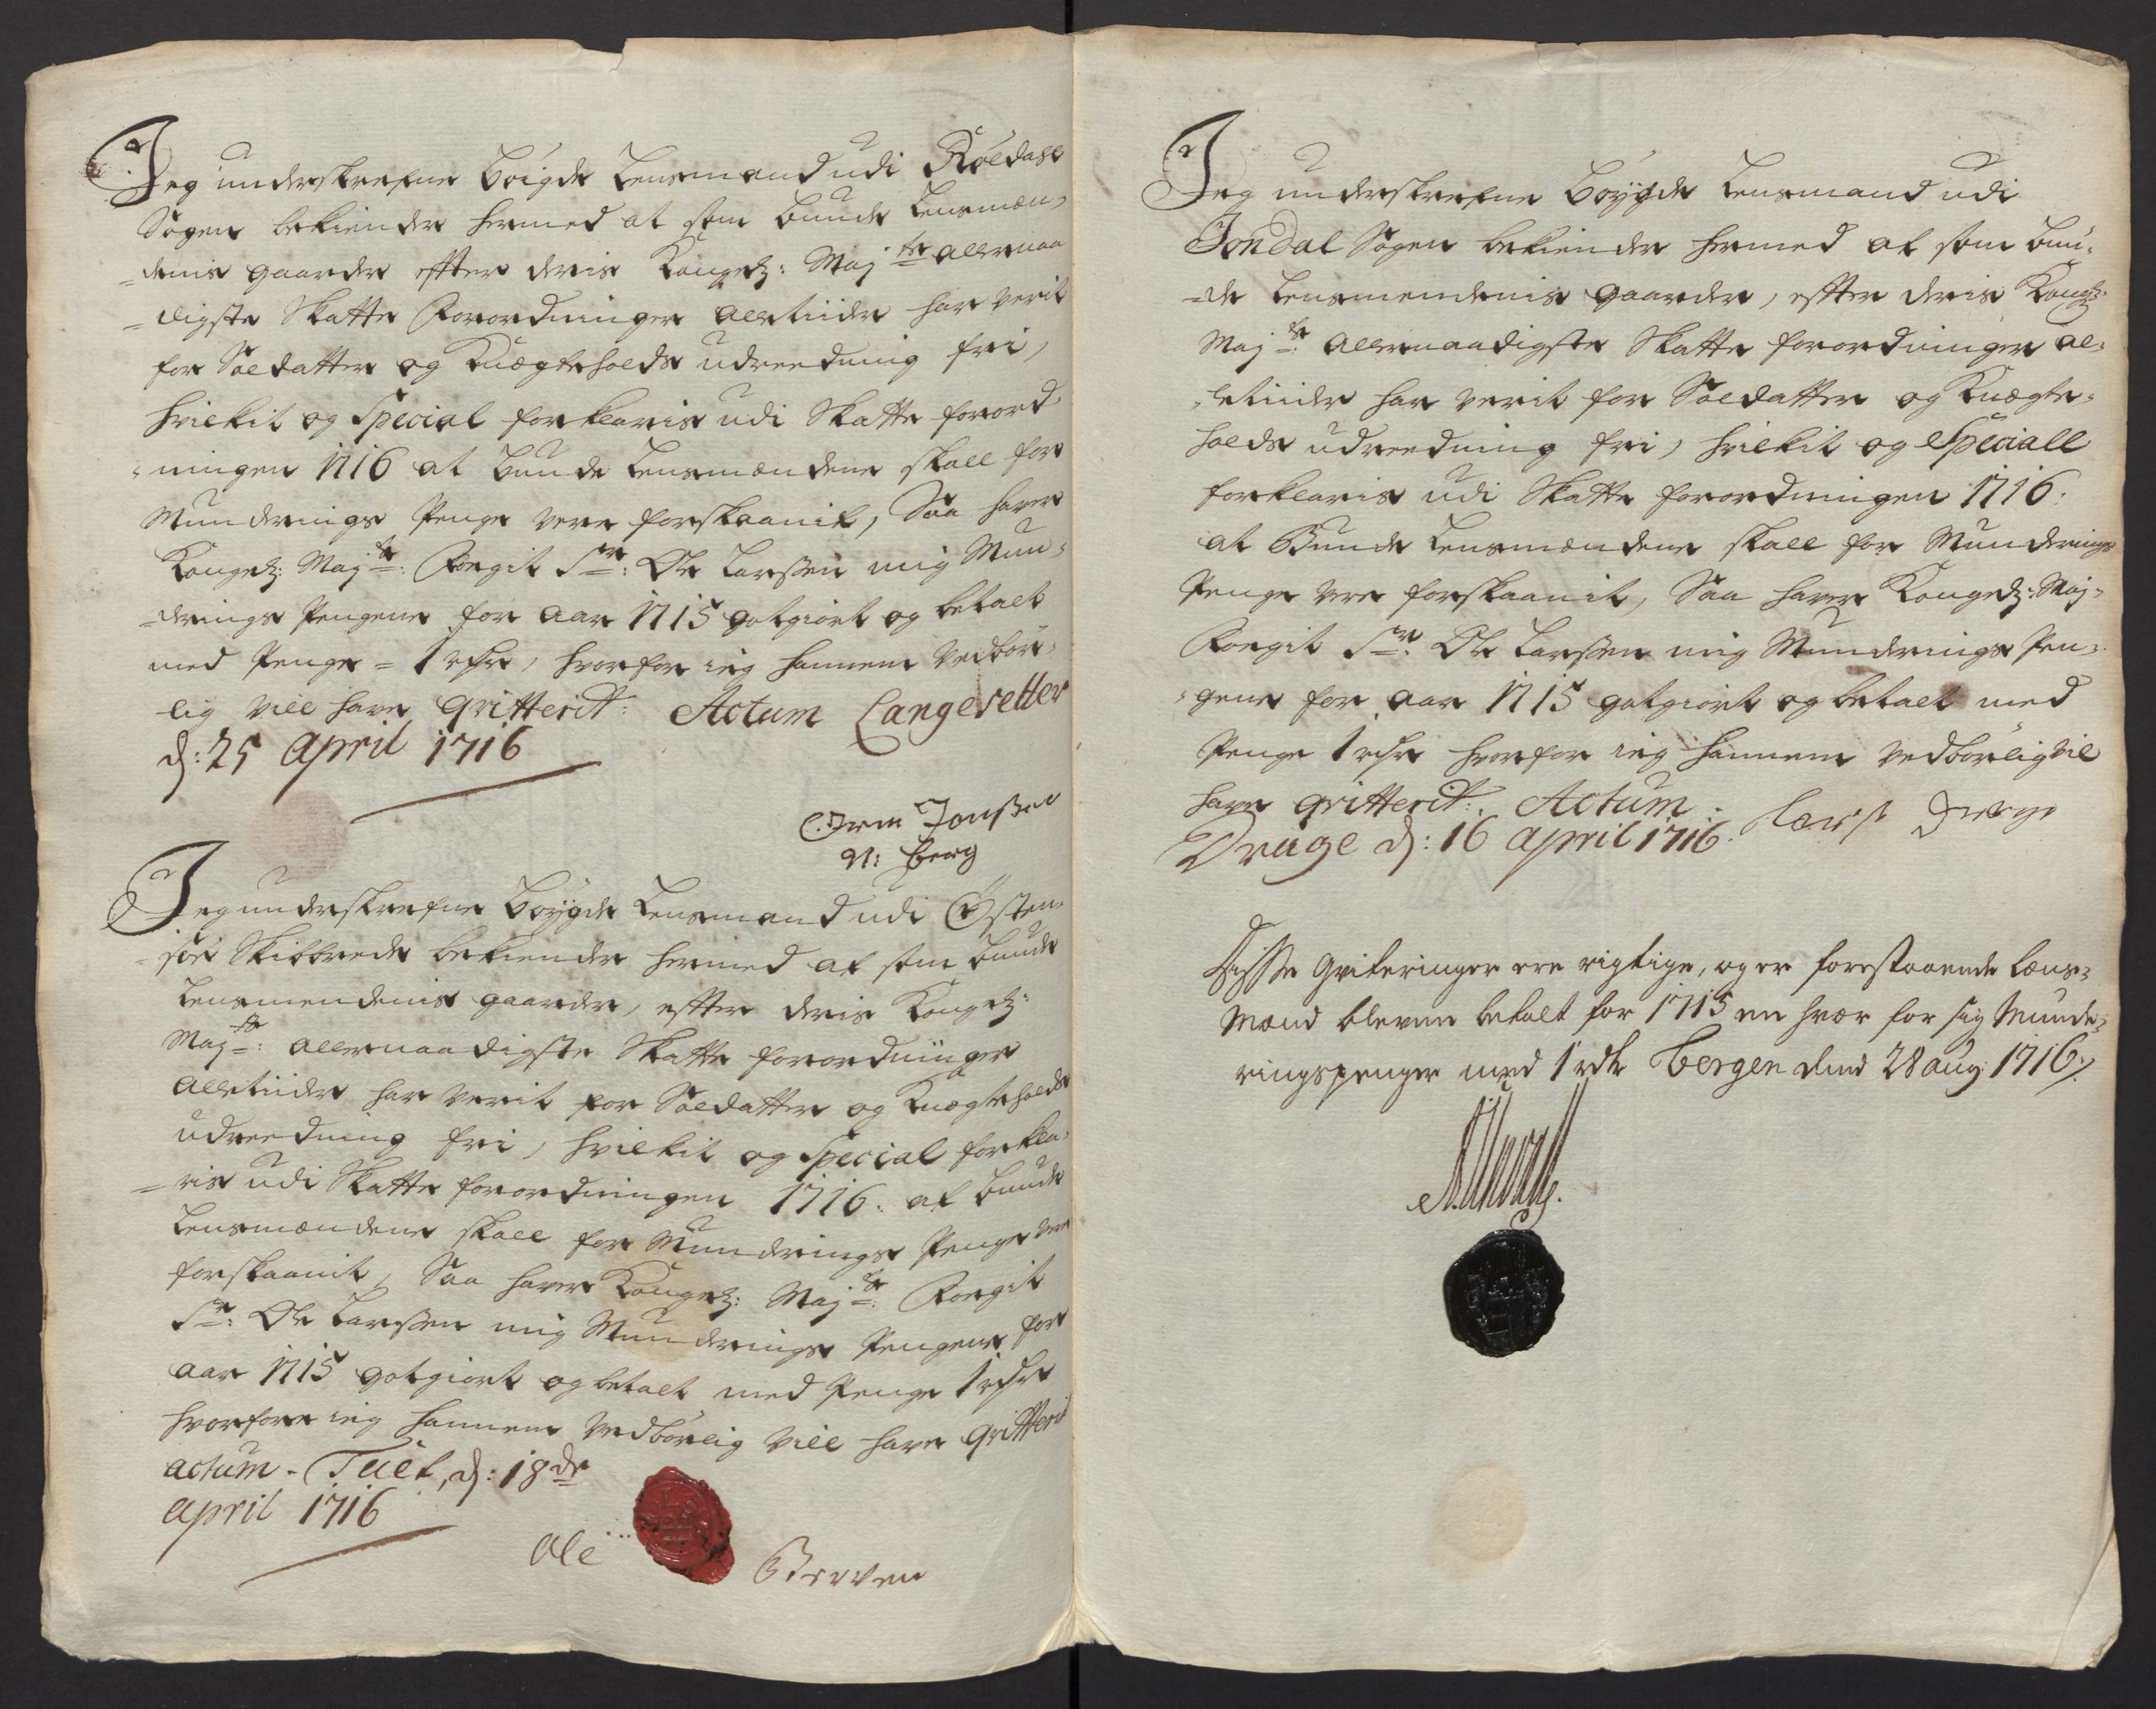 Jeg underskrefne böigde Lensmand udi Röldahl
Sogen bekiender hermed at som bunde Lensmæn,,
=denis gaarder effter deris Kongel: Maj:te allernaa
=digste Skatte Forordninger alletiider har verit
for Soldatter og Knægteholds udreedning frj,
hvilkit og Special forklaris udi Skatte forord,,
,,ningen 1716 at bunde Lensmændene skall for
Munderings Penge vere forskaanit, Saa haver
Kongel: Maj:te: Foegit Sr: Ole Larssen mig Mun=
=derings Pengene for aar 1715 gotgiort og betalt
med Penge = 1 rdr, hvorfor ieg hannem Vedbör,,
lig vill have qvitterit: Actum Langesetter
d: 25 April 1716
Orm Jonssen
N: berg
Jeg underskrefne böygde Lensmand udi Östen,,
=söe Skibbrede bekiender hermed at som bunde
Lensmendenis gaarder, effter deris Kongel:
Maj:te: allernaadigste Skatte forordninger
alletiider har verit for Soldatter og Knægteholds
udreedning frj, hvilkit og Special forkla,,
=ris udi Skatte forordningen 1716: at bunde
Lensmændene skall for Munderings Penge vere
forskaanit, Saa haver Kongel: Maj:te: Foegit
Sr: Ole Larssen mig Munderings Pengene for
aar 1715 gotgiort og betalt med Penge 1 rdr
hvorfore ieg hannem Vedbörlig vill have qvitterit
actum - Tuet, d: 18de
april 1716
Ole Berven
Jeg underskrefne böygde Lensmand udi
Jondal Sogen bekiender hermed at som bun,,
=de Lensmendenis gaarder, effter deris Kongl:
Maj:te: allernaadigste Skatte forordninger al=
,,letiider har verit for Soldatter og Knægte=
holds udreedning frj, hvilkit og Speciall
forklaris udi Skatte forordningen 1716:
at Bunde Lensmændene skall for Munderings
Penge vere forskaanit, Saa haver Kongel: Maj,,
Foegit Sr: Ole Larssen mig Munderings Pen=
,,gene for aar 1715 gotgiort og betalt med
Penge 1 rdr hvorfor ieg hannem Vedbörlig vil
have qvitterit: Actum
Drage d: 16 april 1716. Lars Drage
Disse Qviteringer ere rigtige, og er forestaaende Læns=
Mænd bleven betalt for 1715 en hvær for sig Munde=
ringspenger med 1 rdr Bergen dend 28 aug: 1716